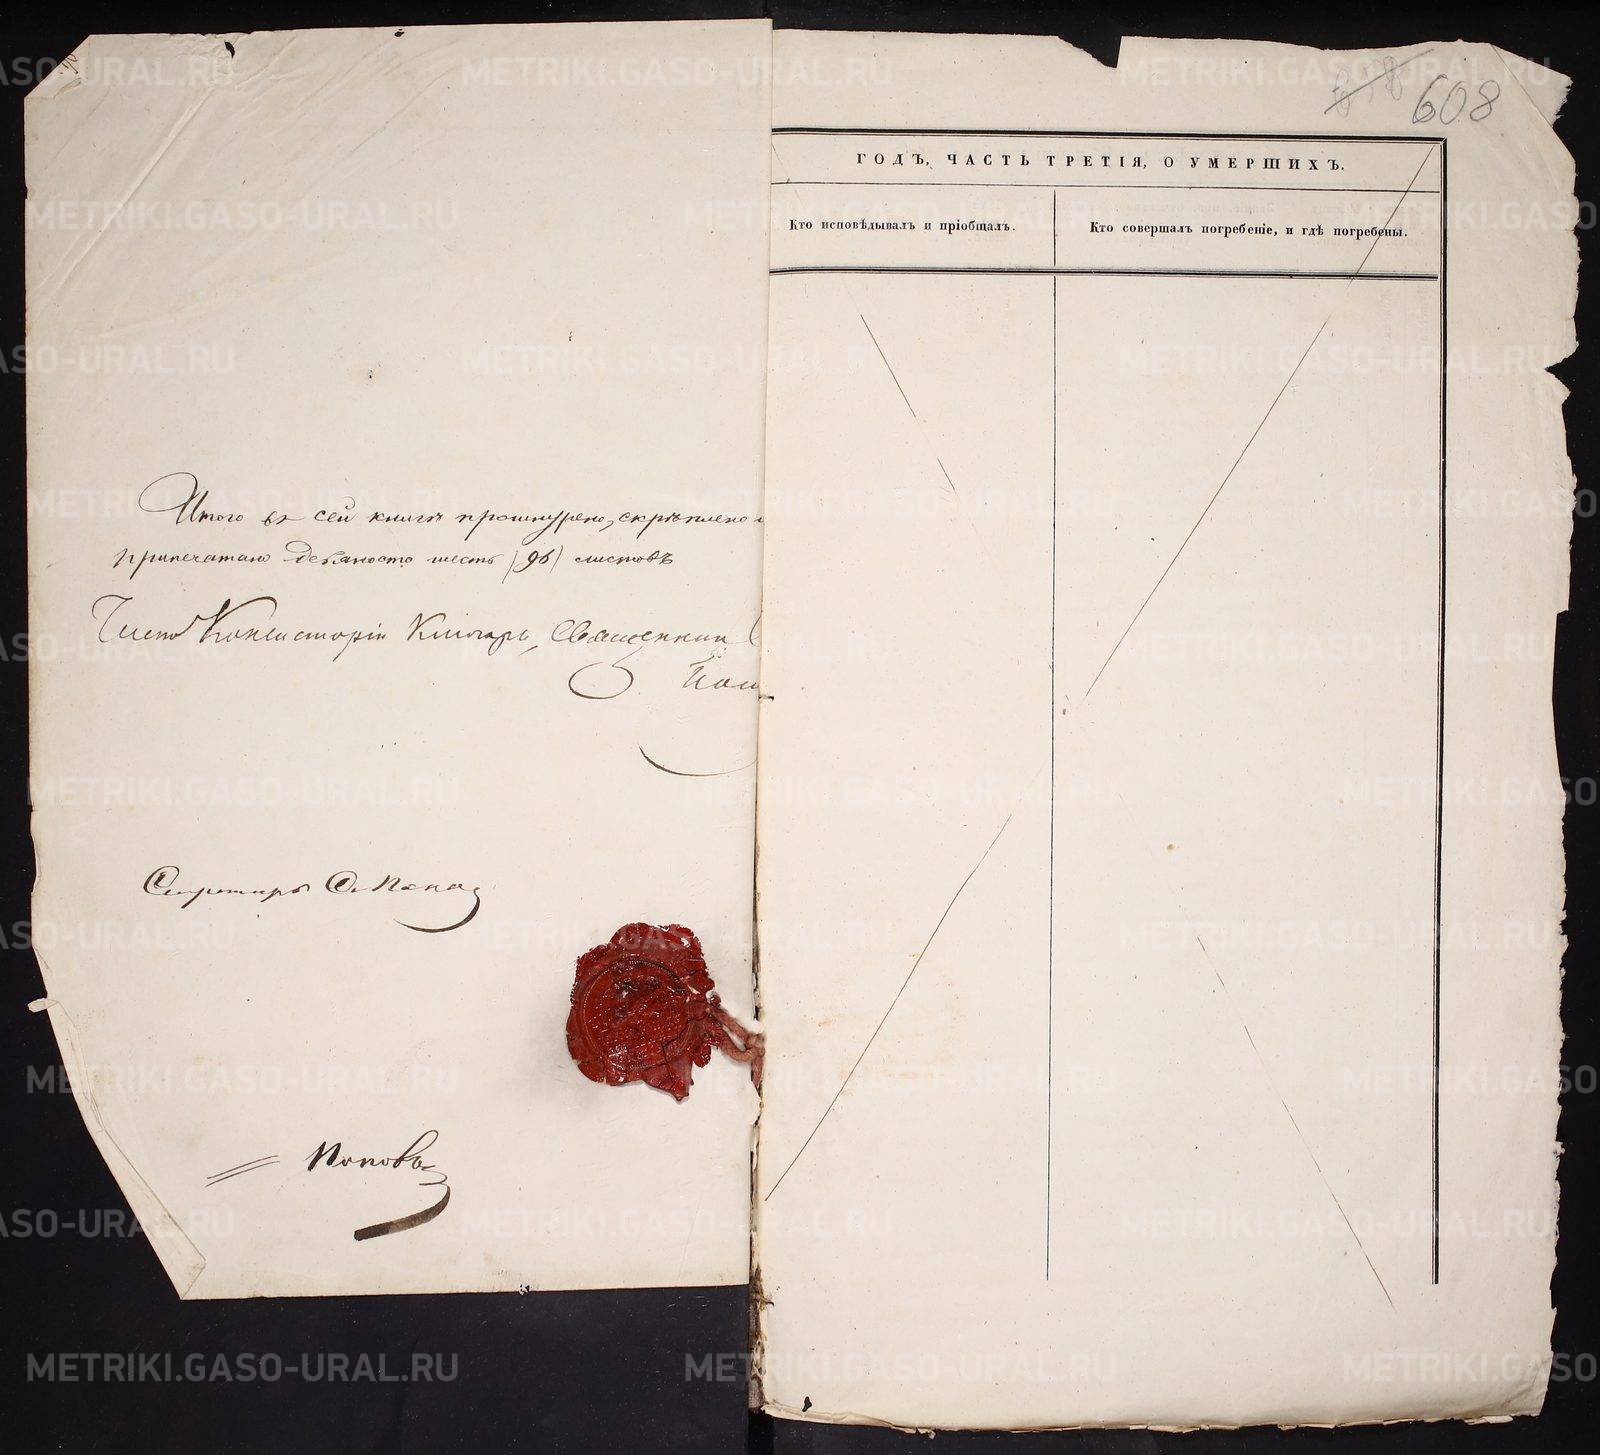 Итого въ сей книгѣ прошнурено, скрѣплено и
припечатано девяносто шесть (96) листовъ
Членъ Консисторіи Ключарь, Священник
Секретарь Попов
Поповъ
608
ГОДЪ, ЧАСТЬ ТРЕТІЯ, О УМЕРШИХЪ.
Кто исповѣдывалъ и пріобщалъ.
Кто совершалъ погребеніе, и гдѣ погребены.
METRIKI.GASO-URAL.RU